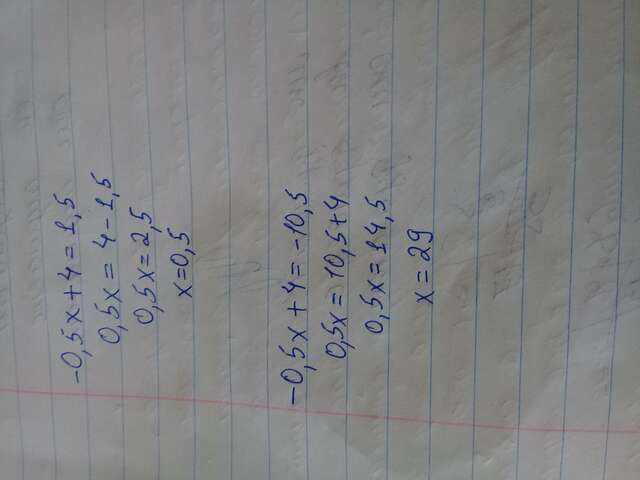 -0,5x+4=1,5
0,5x=4-1,5
0,5x=2,5
x=0,5
-0,5x+4=-10,5
0,5x=10,5+4
0,5x=14,5
x=29